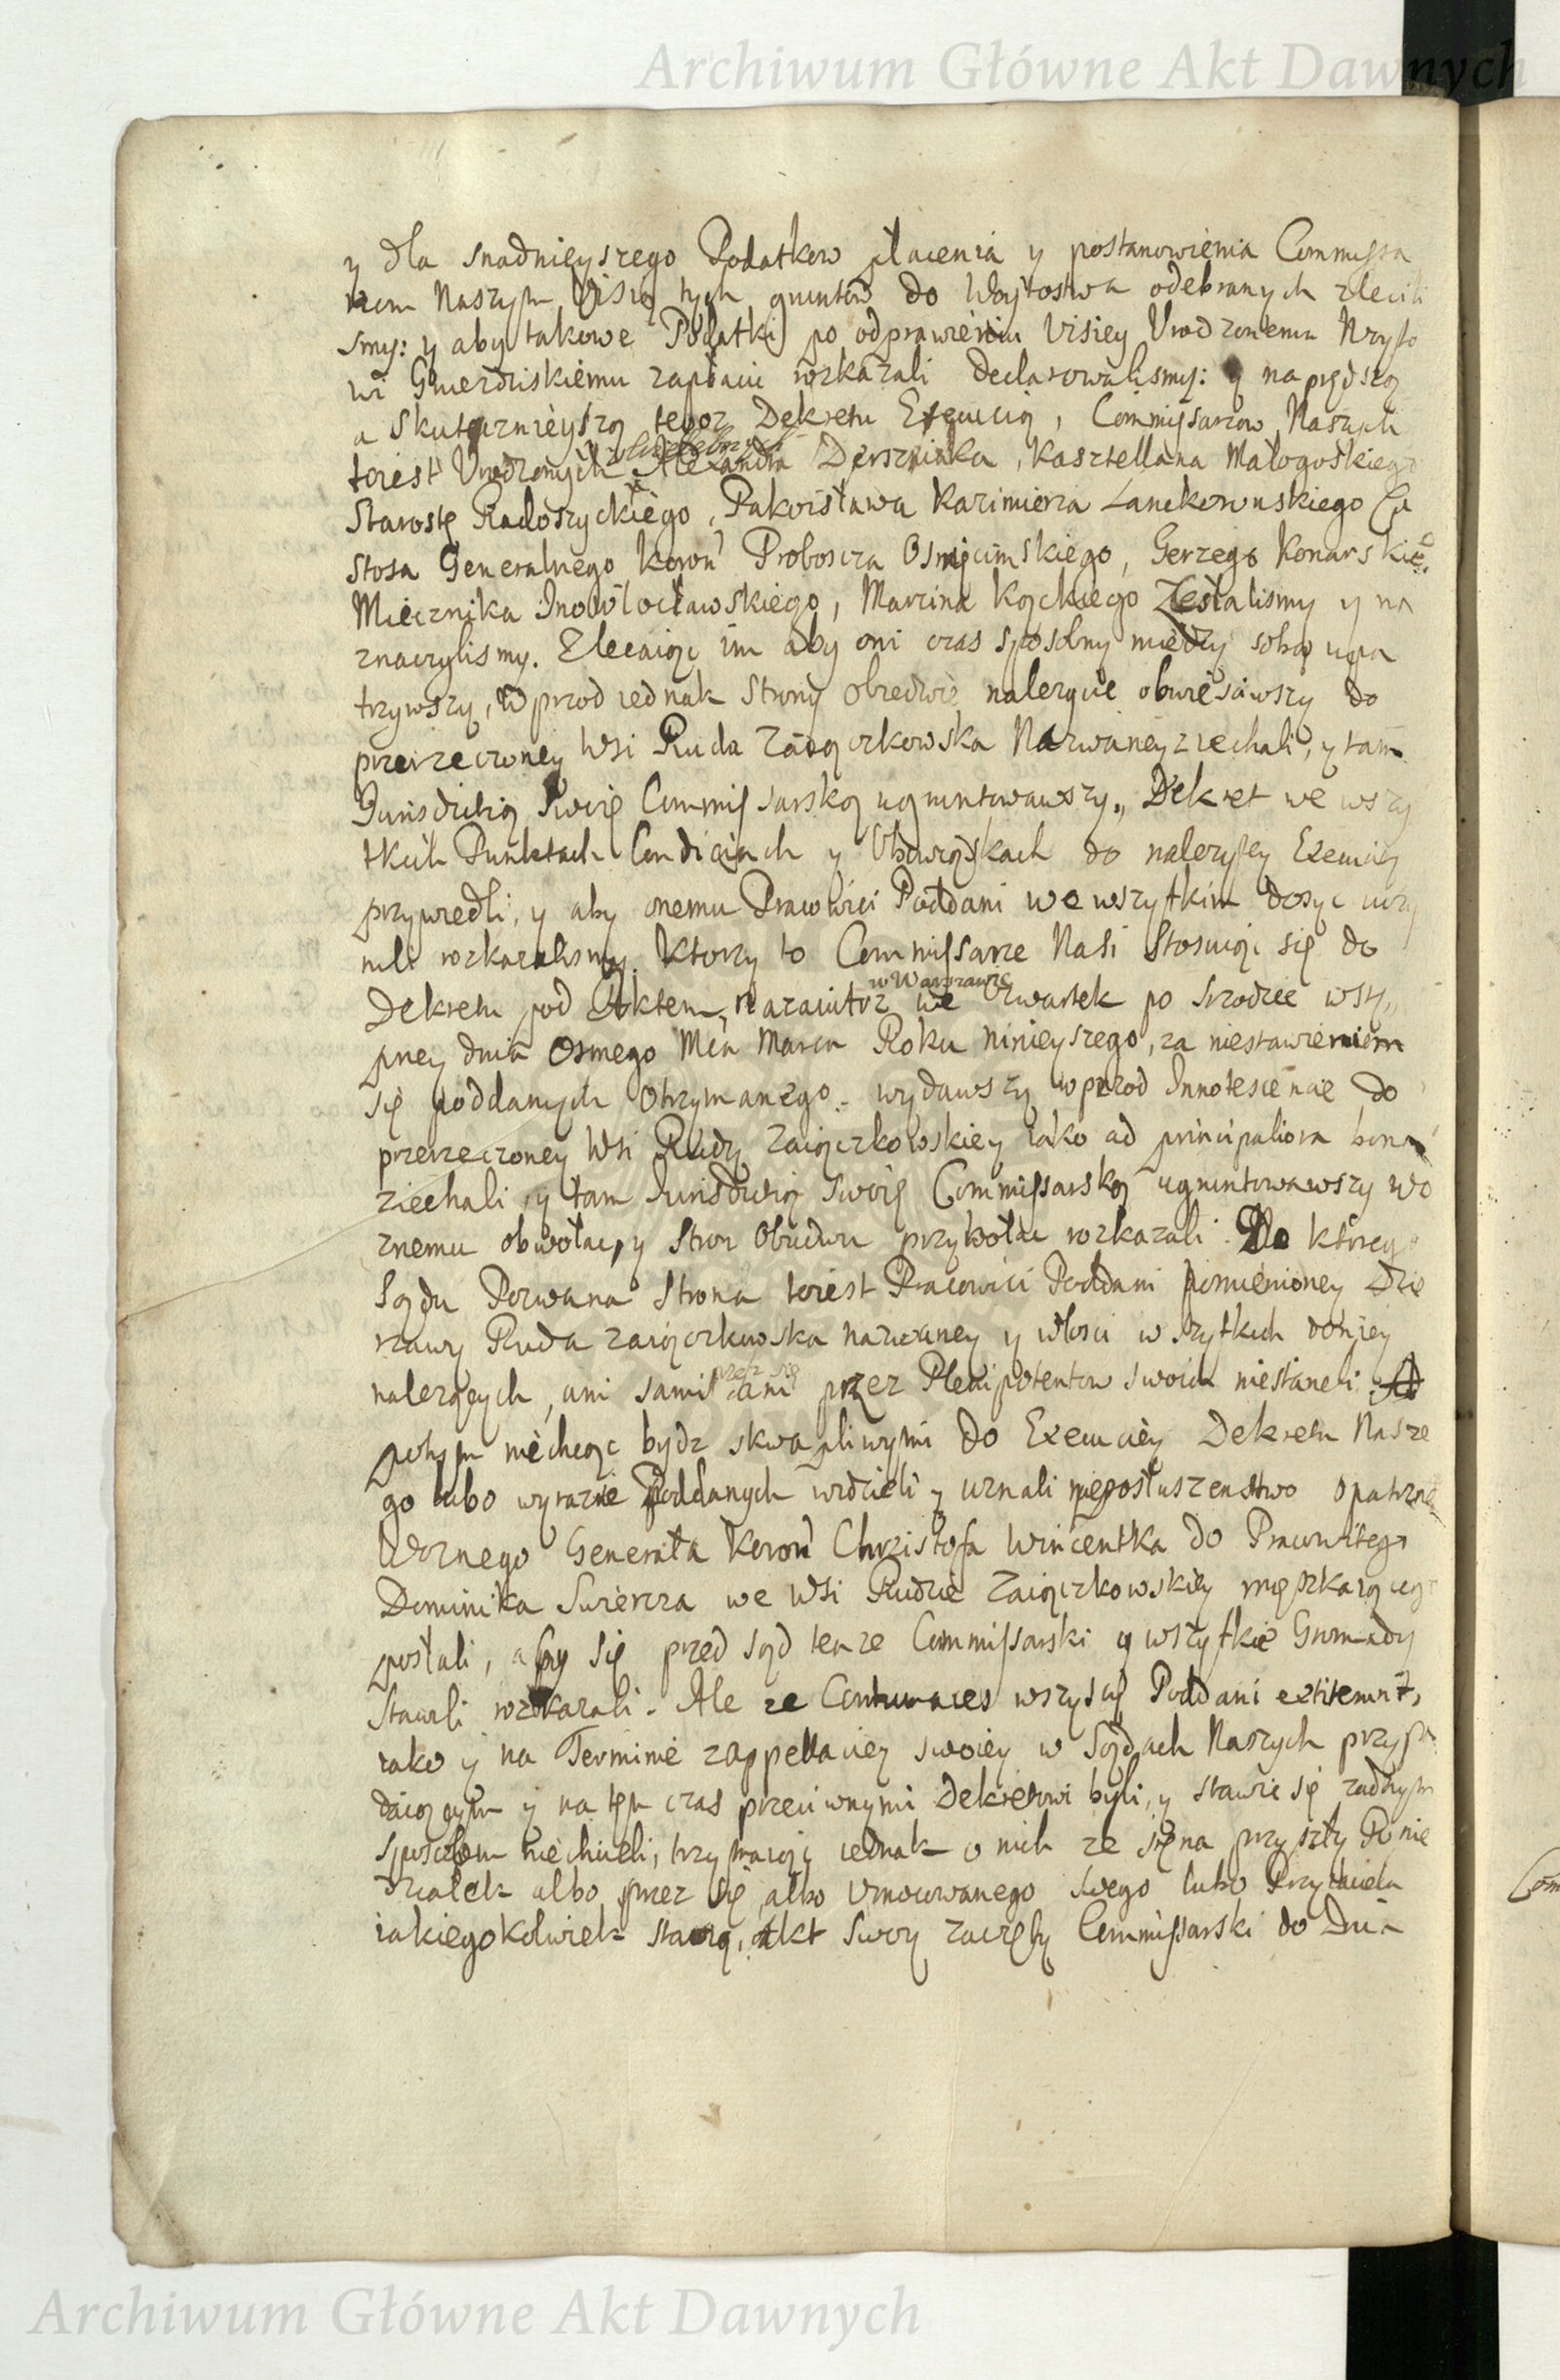 Archiwum Główne Akt Dawnych
y dla snadnieyszego Podatkow płacenia y postanowienia Commissa
rzom Naszym Visię tych gruntow do Woytostwa odebranych zlecili
smy: y aby takowe Podatki po odprawieniu Visiey Vrodzonemu Woyto
wi Gwerdziskiemu zapłacic rozkazali declarowalismy: y na prędszą
a skutecznieyszą tegoz Dekretu Exęcucią, Commissarzow Naszych
toiest Vrodzonych Alexandra Derszniaka, Kasztellana Małogoskiego
Starostę Radoszyckiego, Pakosława Kazimierza Lanckorunskiego Cu
stosa Generalnego Koron Proboscza Osmięcimskiego, Gerzego Konarskie°
Miecznika Inowłocławskiego, Marcina Kąckiego Zesłalismy y na
znaczylismy. Zlecaiąc im aby oni czas sposobny między sobą upa
trzywszy, wprzod iednak Strony obiedwie nalezycie obwiesciwszy do
przerzeczoney Wsi Ruda Zaiączkowska Nazwaney ziechali, y tam
Jurisdictią swoię Commissarską ugruntowawszy, Dekret we wszy
tkich Punktach Condiciach y Obowiąskach do nalezytey Exemciey
przywiedli, y aby onemu Pracowici Poddani we wszytkim dosyc uczy
nili rozkazalismy. Ktorzy to Commissarze Nasi Stosuiąc się do
w Warszawie
Dekretu pod Aktem, we Czwartek po Srzodzie wstę
pney dnia Osmego Mca Marca Roku ninieyszego, za niestawieniem
się poddanych otrzymanego. wydawszy wprzod Innotescencie do
przerzeczoney Wsi Rudy Zaiączkowskiey iako ad principaliora bona
ziechali, y tam Jurisdictią swoię Commissarską ugruntowawszy wo
znemu obwołac, y Stron Obudwu przywołac rozkazali. Do ktorego
Sądu Pozwana Strona toiest Pracowici Poddani pomienioney Dzie
rzawy Ruda Zaiączkowska nazwaney y włosci wszytkich doniey
przez się
nalezących, ani sami ani przez Plenipotentow swoich niestaneli.
potym niechcąc bydz skwapliwymi do Execuciey Dekretu Nasze
go lubo wyraznie Poddanych widzieli y uznali nieposłuszenstwo opatrzne°
Woznego Generała Koron Chrzistofa Wincentka do Pracowitego
Dominika Swiercza we Wsi Rudzie Zaiączkowskiey mięszkaiącego
posłali, aby się przed sąd tenze Commissarski y wszytkie Gromady
stawili rozkazali. Ale ze Contumaces wszyscy Poddani extiterunt,
iako y na Terminie z appellaciey swoiey w Sądach Naszych przypa
daiącym y na tęn czas przeciwnymi Dekretowi byli, y stawic się zadnym
sposobem niechcieli, trzymaiąc iednak o nich ze się na przyszły Ponie
działek albo przez się, albo Vmocowanego swego lubo Przyiaciela
iakiegokolwiek stawią, Akt swoy zaczęty Commissarski do Dnia
Archiwum Główne Akt Dawnych